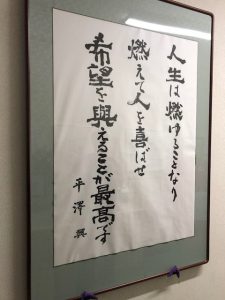 人生は燃ゆることなり
燃えて人を喜ばせ
希望を與えることが最高です
平澤興